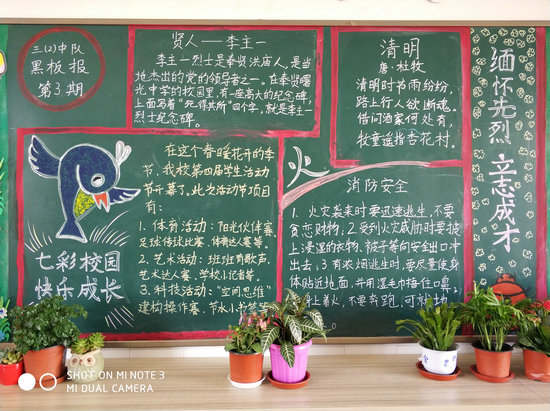 三(2)中队
黑板报
第3期
贤人——李主一
李主一烈士是奉贤洪庙人,是当
地杰出的党的领导者之一。在奉贤曙
光中学的校园里有一座高大的纪念碑,
上面写着“死得其所”四个字,就是李主一
烈士纪念碑。
清明
唐·杜牧
清明时节雨纷纷,
路上行人欲断魂。
借问酒家何处有,
牧童遥指杏花村。
缅怀先烈 立志成才
七彩校园
快乐成长
在这个春暖花开的季
节,我校第四届学生活动
节开幕了,此次活动节项目
有:
1. 体育活动:阳光伙伴赛、
足球传球比赛、体育达人赛等。
2. 艺术活动:班班有歌声、
艺术达人赛、学校小记者等。
3. 科技活动:“空间思维”
建构操作赛、节水小
火
消防安全
1. 火灾袭来时要迅速逃生,不要
贪恋财物;2. 受到火灾威胁时要披
上浸湿的衣物、被子等向安全出口冲
出去;3. 有浓烟逃生时,要尽量使身
体贴近地面,并用湿毛巾捂住口鼻;
身上着火,不要奔跑,可就地
SHOT ON MI NOTE 3
MI DUAL CAMERA